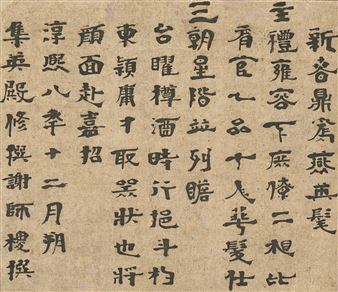 新啓鼎席燕英髦
主禮雍容下庶僚二相比
肩官一品十人華髮仕
三朝星階並列瞻
台曜樽酒時行挹斗杓
東潁庸才取器狀也將
顔面赴嘉招
淳熙八年十二月朔
集英殿修撰謝師稷撰